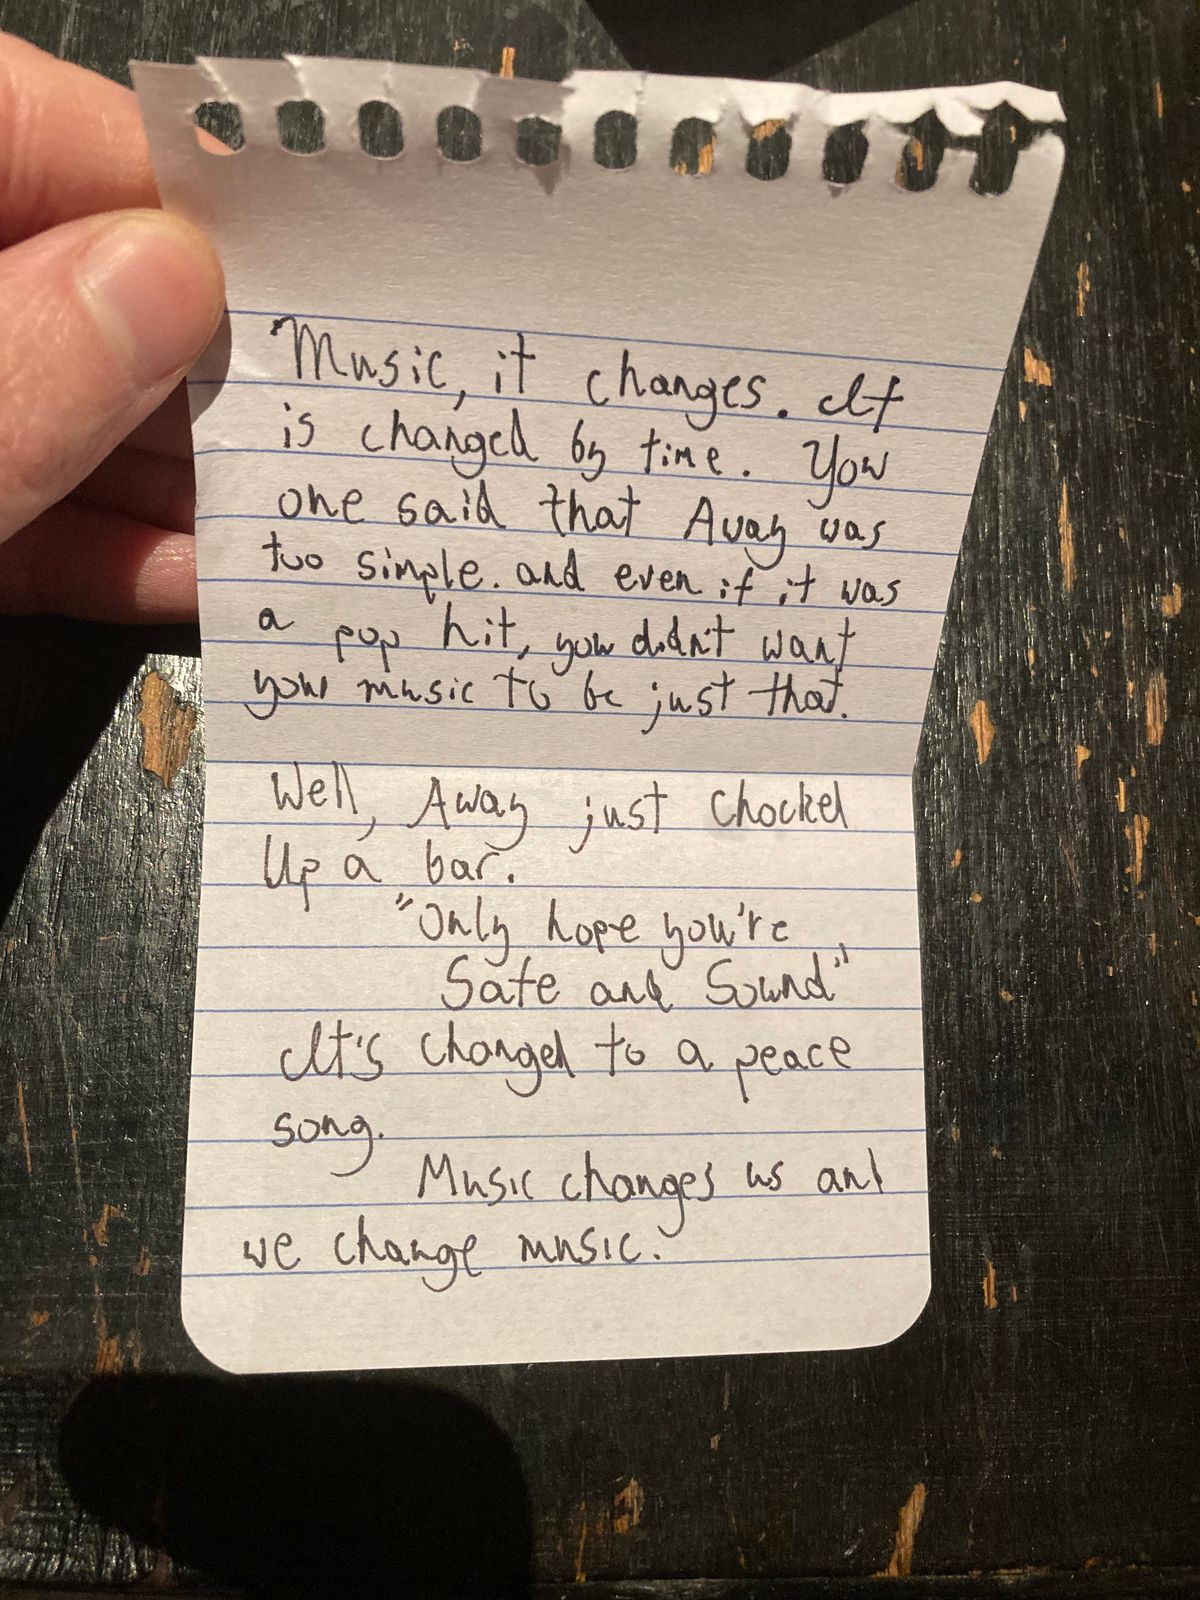 Music, it changes. It
is changed by time. You
one said that Away was
too simple. and even if it was
a pop hit, you didn't want
your music to be just that.
Well, Away just chocked
up a bar.
"Only hope you're
Safe and Sound"
It's changed to a peace
song.
Music changes us and
we change music.